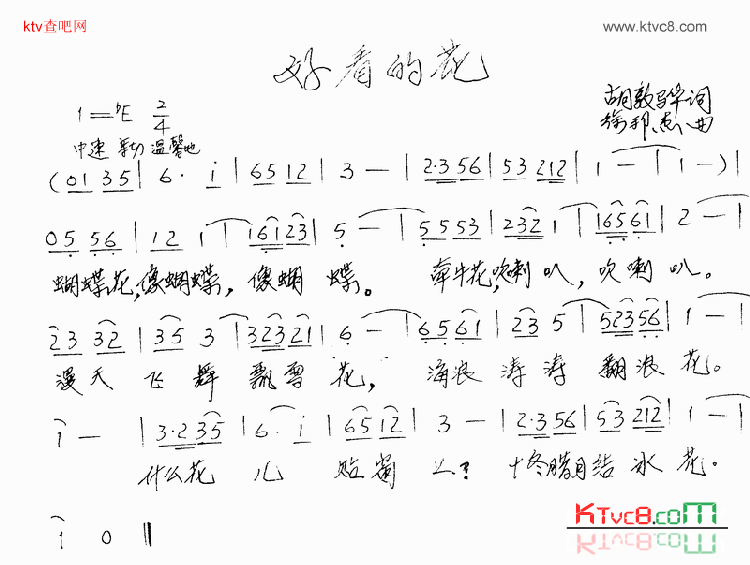 ktv查吧网
www.ktvc8.com
好看的花
1=♭E 2/4
胡敦骅词
徐邦杰曲
中速 亲切 温馨地
(01 35 | 6· i | 65 12 | 3 — | 2·3 56 | 53 212 | 1 — | 1 —) |
05 56 | 12 1 | 161 23 | 5 — | 55 53 | 232 1 | 165 61 | 2 — |
蝴蝶花,像蝴蝶,像蝴蝶。牵牛花,吹喇叭,吹喇叭。
23 32 | 35 3 | 323 21 | 6 — | 65 61 | 23 5 | 523 56 | 1 — |
漫天飞舞飘雪花,海浪涛涛翻浪花。
i — | 3·2 35 | 6· i | 65 12 | 3 — | 2·3 56 | 53 212 | 1 — |
什么花儿贴窗上?十冬腊月结冰花。
i 0 ‖
KTvc8.com